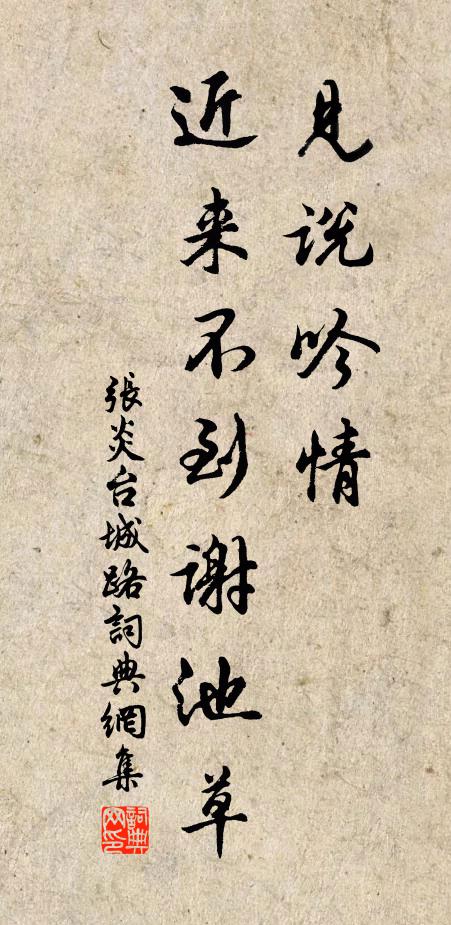 見説吟情
近来不到謝池草
張炎台城路詞典網集
詞典
网印